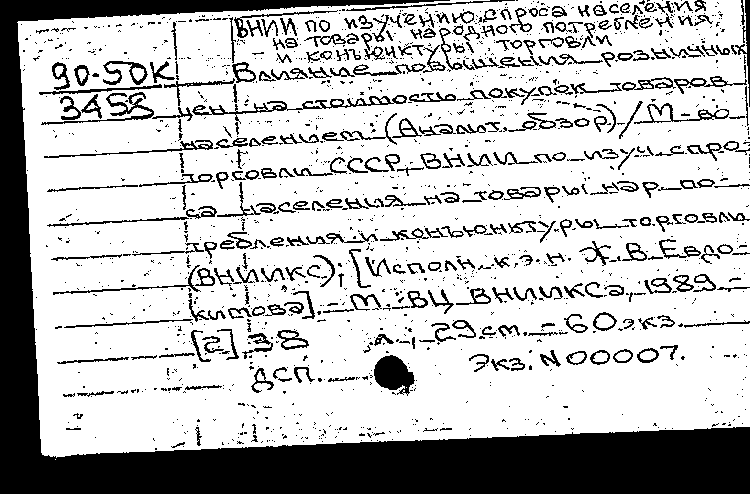 ВНИИ по изучению спроса населения
на товары народного потребления
и конъюнктуры торговли
90-50К
Влияние повышения розничных
3458
цен на стоимость покупок товаров
населением: (Аналит. обзор) / М-во
торговли СССР, ВНИИ по изуч. спро-
са населения на товары нар. по-
требления и конъюнктуры торговли
(ВНИИКС); [Исполн. к.э.н. Ж.В. Евдо-
кимова]. - М.: ВЦ ВНИИКСа, 1989. -
[2], 38 л.; 29 см. - 60 экз.
ДСП. Экз. N 00007.